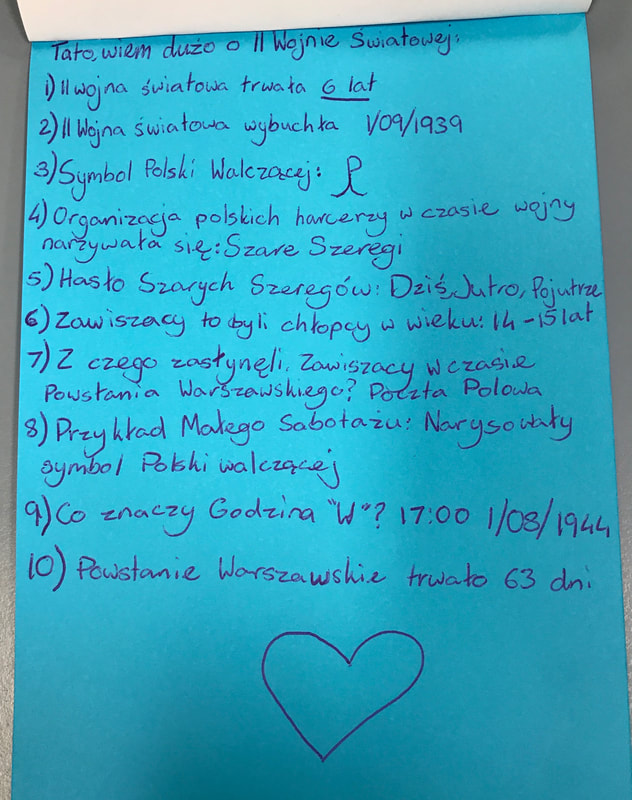 Tato, wiem dużo o II Wojnie Światowej:
1) II wojna światowa trwała 6 lat
2) II Wojna światowa wybuchła 1/09/1939
3) Symbol Polski Walczącej:
4) Organizacja polskich harcerzy w czasie wojny
narzywała się: Szare Szeregi
5) Hasło Szarych Szeregów: Dziś, Jutro, Pojutrze
6) Zawiszacy to byli chłopcy w wieku: 14-15 lat
7) Z czego zasłynęli Zawiszacy w czasie
Powstania Warszawskiego? Poczta Polowa
8) Przykład Małego Sabotażu: Narysowały
symbol Polski walczącej
9) Co znaczy Godzina "W"? 17:00 1/08/1944
10) Powstanie Warszawskie trwało 63 dni